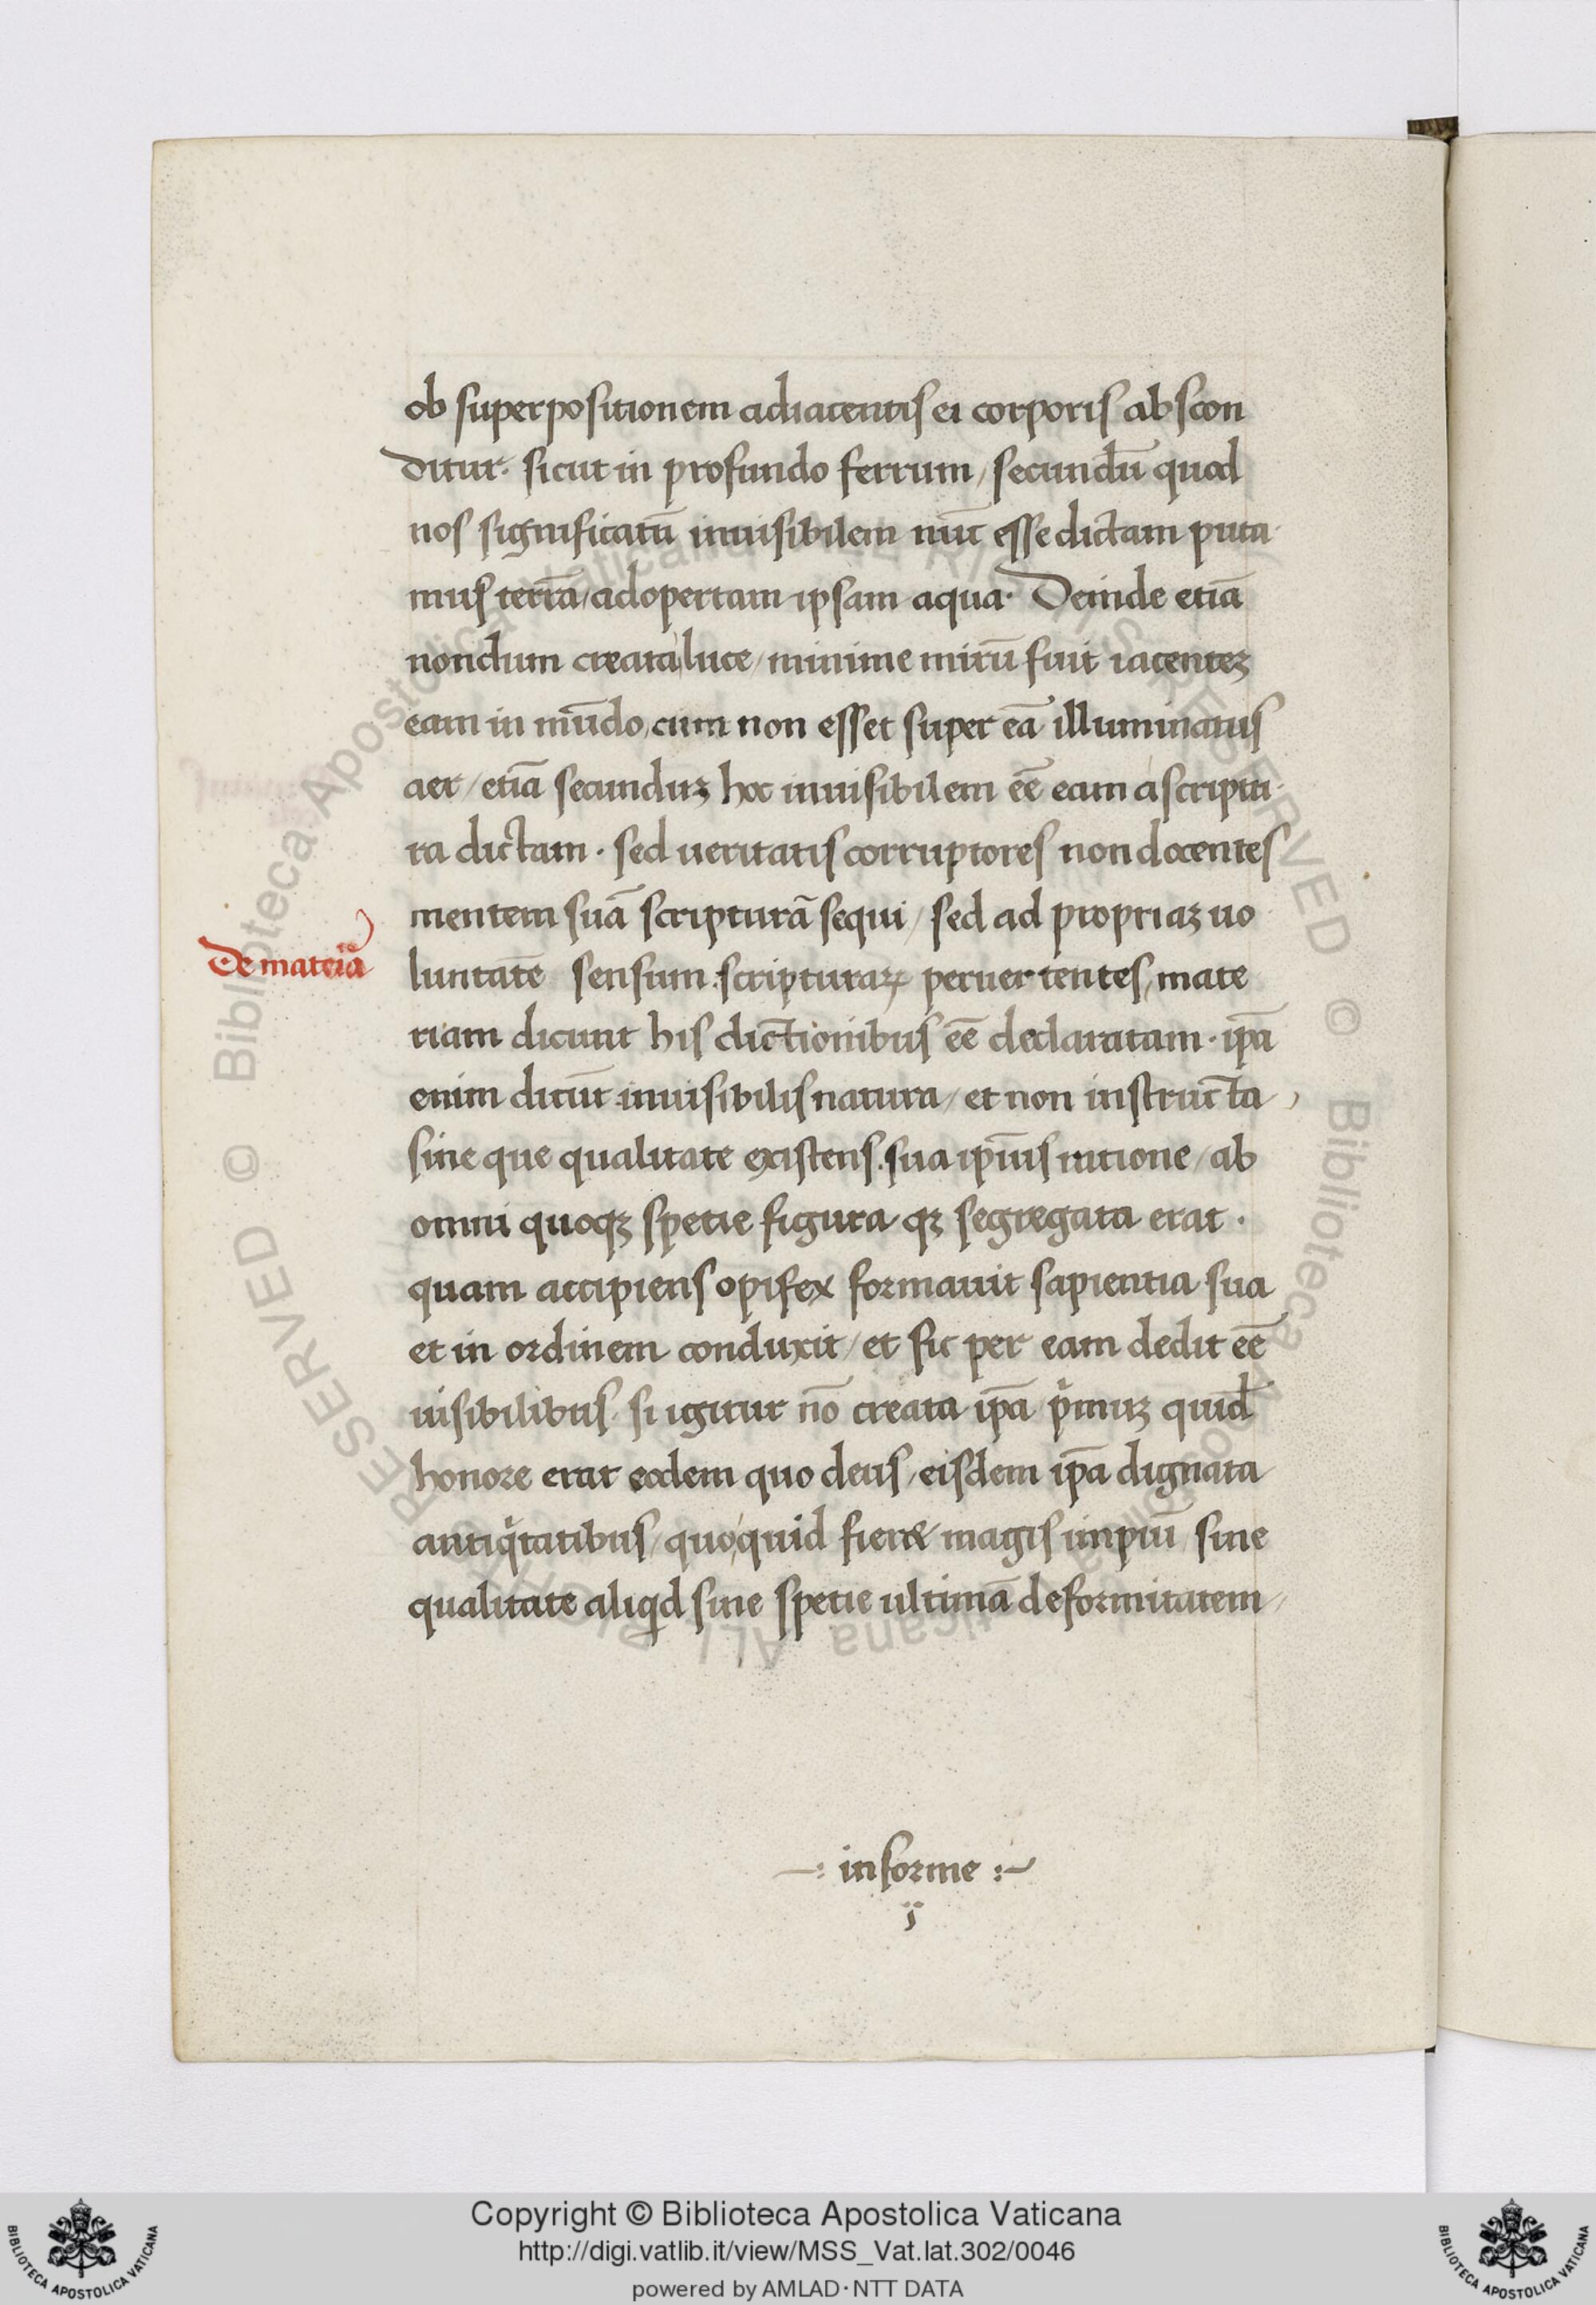 ob superpositionem adiacentis ei corporis abscon
ditur. sicut in profundo ferrum / secundū quod
nos significatū inuisibilem nūc esse dictam puta
mus terrā / adopertam ipsam aqua. Deinde etiā
nondum creata luce / minime mirū fuit iacenteꝫ
eam in mūdo, cum non esset super eā illuminatus
aer / etiā secunduꝫ hoc inuisibilem eē eam a scriptu
ra dictam. sed ueritatis corruptores non docentes
mentem suā scripturā sequi / sed ad propriaꝫ uo
De materia
luntatē sensum scripturaꝝ peruertentes, mate
riam dicunt his dictionibus eē declaratam. ip̄a
enim dicūt inuisibilis natura / et non instructa
sine que qualitate existens. sua ip̄ius ratione / ab
omni quoqꝫ spetie figura qꝫ segregata erat.
quam accipiens opifex formauit sapientia sua
et in ordinem conduxit / et sic per eam dedit eē
uisibilibus. si igitur nō creata ip̄a pͥmuꝫ quid̄
honore erat eodem quo deus / eisdem ip̄a dignata
antiqͥtatibus / quo quid fieret magis impiū sine
qualitate aliqid sine spetie ultimā deformitatem
informe
Copyright © Biblioteca Apostolica Vaticana
http://digi.vatlib.it/view/MSS_Vat.lat.302/0046
powered by AMLAD·NTT DATA
BIBLIOTECA APOSTOLICA VATICANA
BIBLIOTECA APOSTOLICA VATICANA